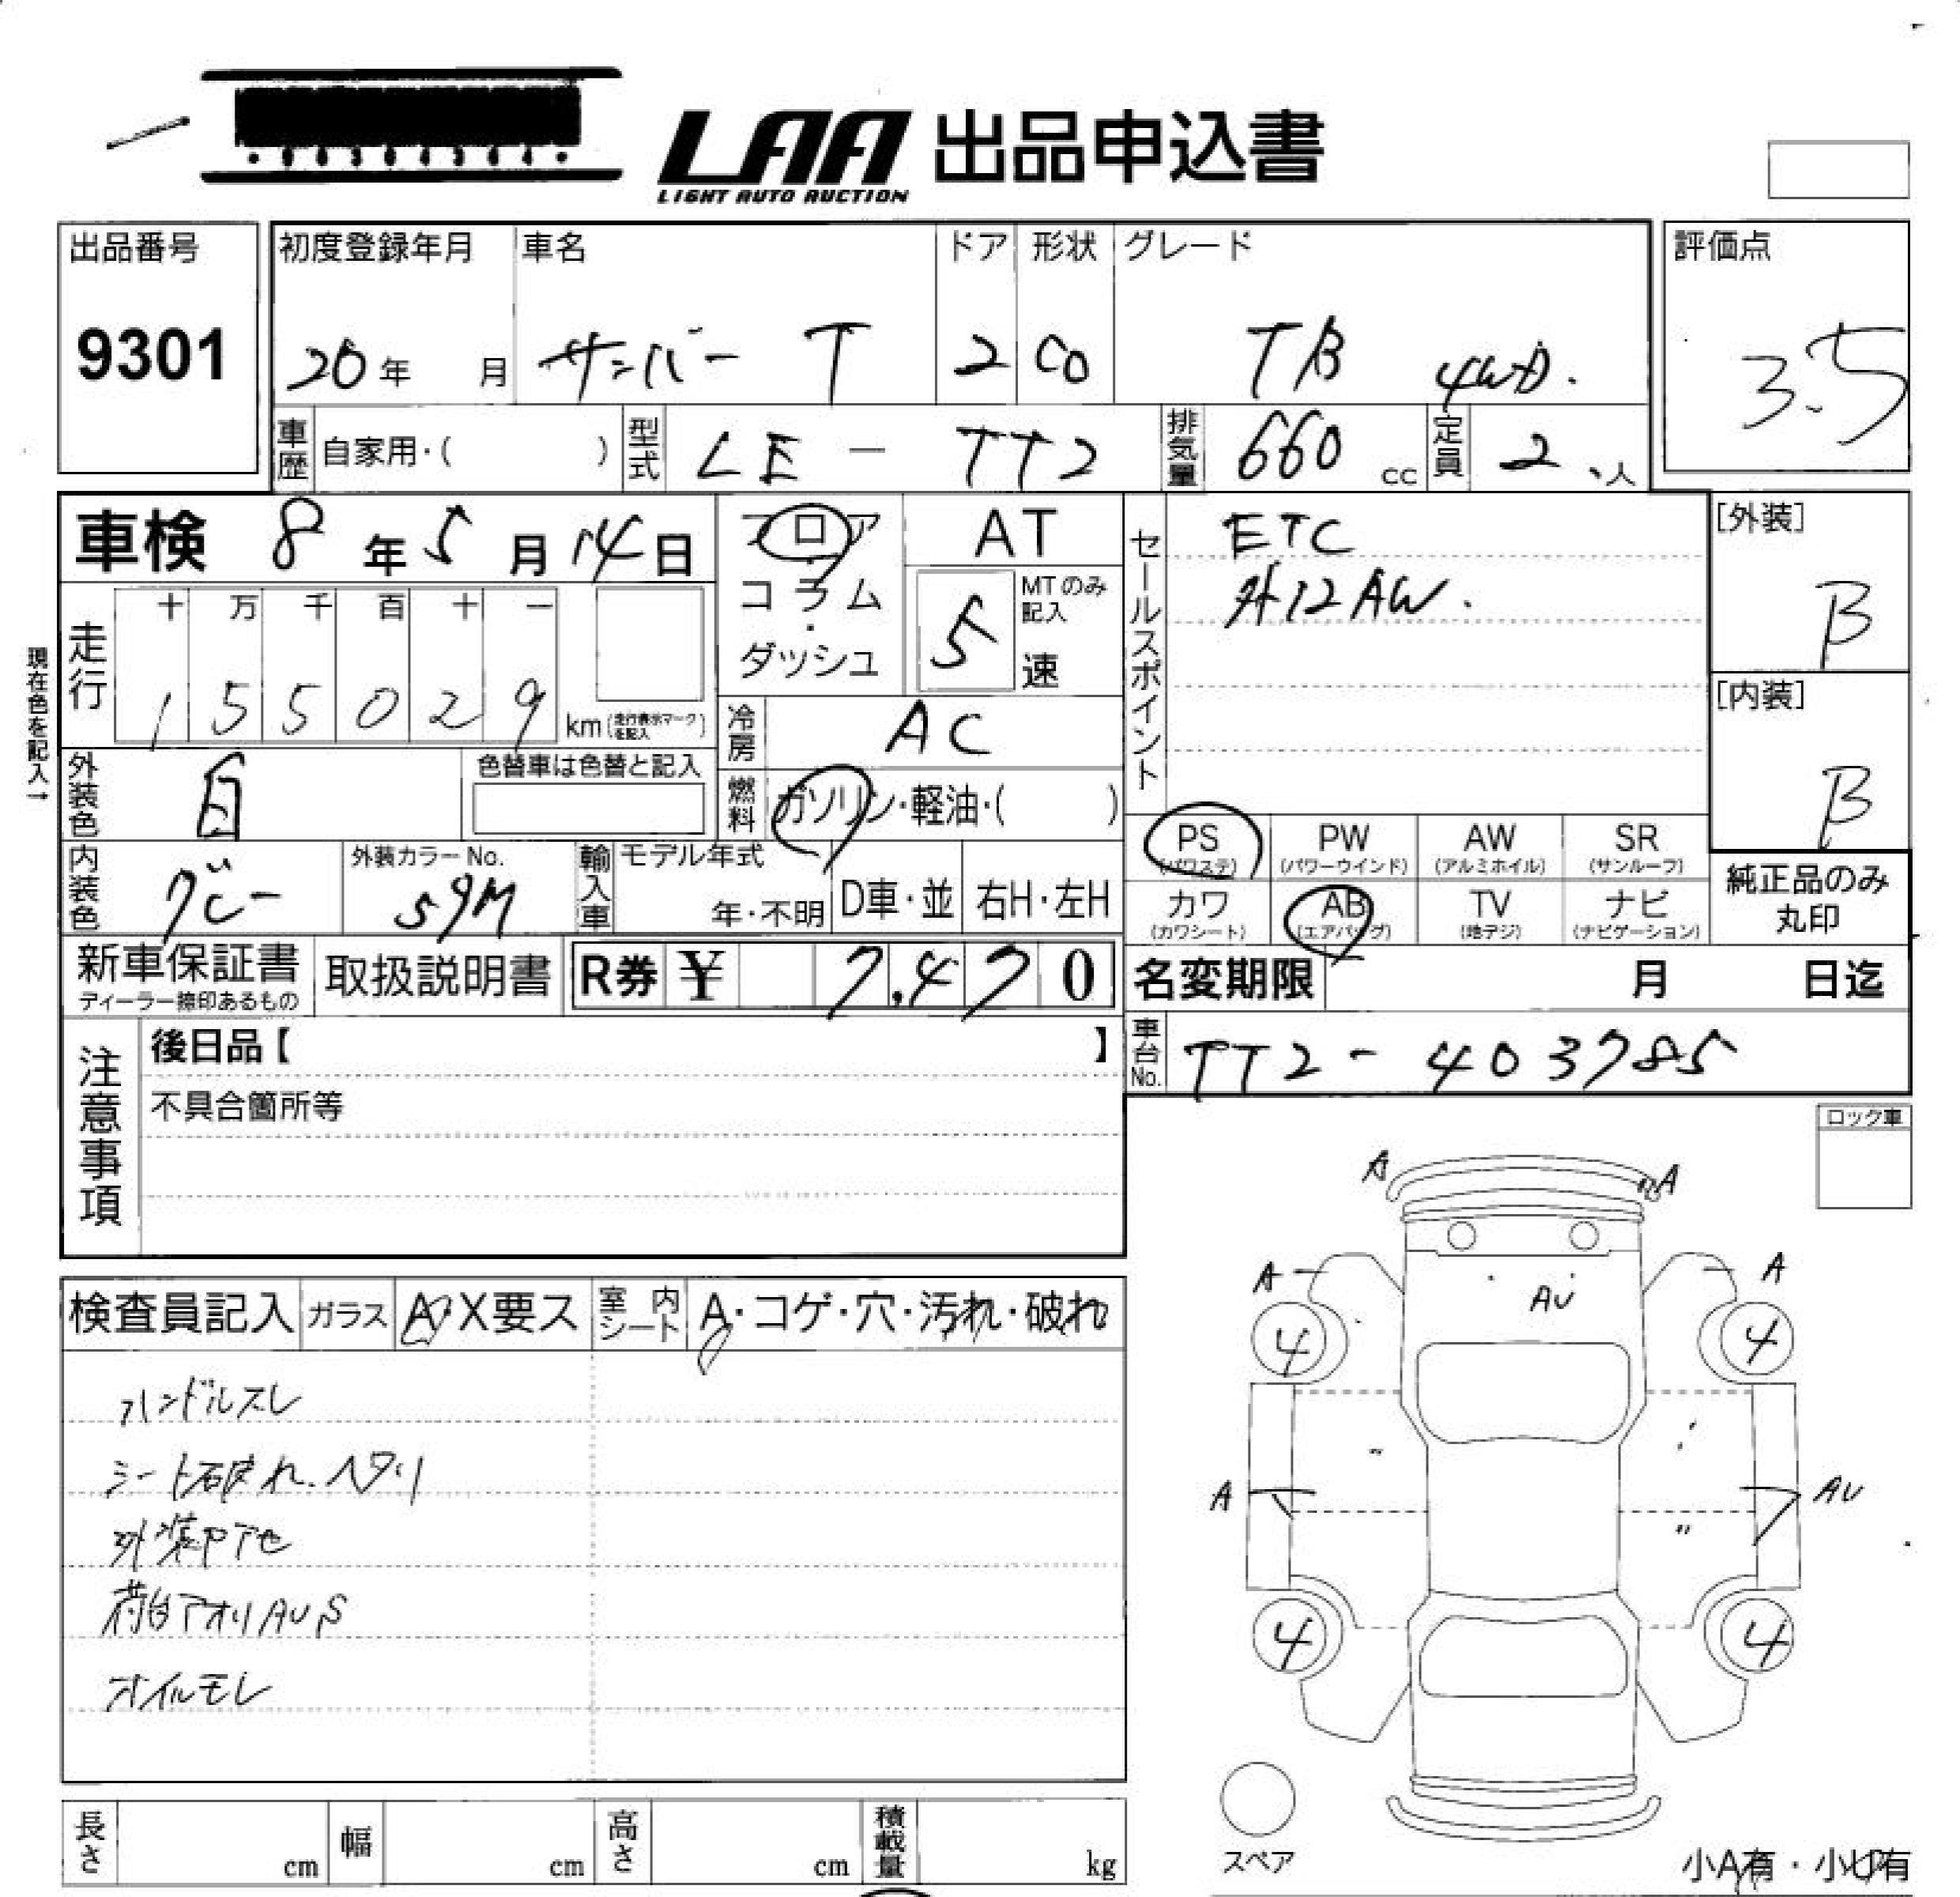 LAA 出品申込書
LIGHT AUTO AUCTION
出品番号
9301
初度登録年月
20年 月
車名
サンバー T
ドア
2
形状
CO
グレード
TB 4WD.
評価点
3.5
車歴
自家用・( )
型式
LE - TT2
排気量
660 cc
定員
2 人
車検 8年5月14日
フロア・コラム・ダッシュ
AT
MTのみ記入
5速
セールスポイント
ETC
外12AW.
[外装]
B
[内装]
B
現在色を記入→
走行
十 万 千 百 十 一
1 5 5 0 2 9 km(走行表示マークを記入)
冷房
AC
外装色
白
色替車は色替と記入
燃料
ガソリン・軽油・( )
内装色
グレー
外装カラーNo.
59M
輸入車
モデル年式
年・不明
D車・並
右H・左H
PS (パワステ)
PW (パワーウインド)
AW (アルミホイル)
SR (サンルーフ)
カワ (カワシート)
AB (エアバッグ)
TV (地デジ)
ナビ (ナビゲーション)
純正品のみ丸印
新車保証書
ディーラー捺印あるもの
取扱説明書
R券 ¥ 7,470
名変期限 月 日迄
車台No.
TT2-403785
注意事項
後日品【 】
不具合箇所等
ロック車
検査員記入
ガラス
A・X要ス
室内シート
A・コゲ・穴・汚れ・破れ
ハンドルスレ
シート破れ.ヘタリ
外装キズ色
荷台アオリAUS
オイルモレ
A A
A A
AU
4 4
A AU
4 4
スペア
小A有・小U有
長さ cm
幅 cm
高さ cm
積載量 kg